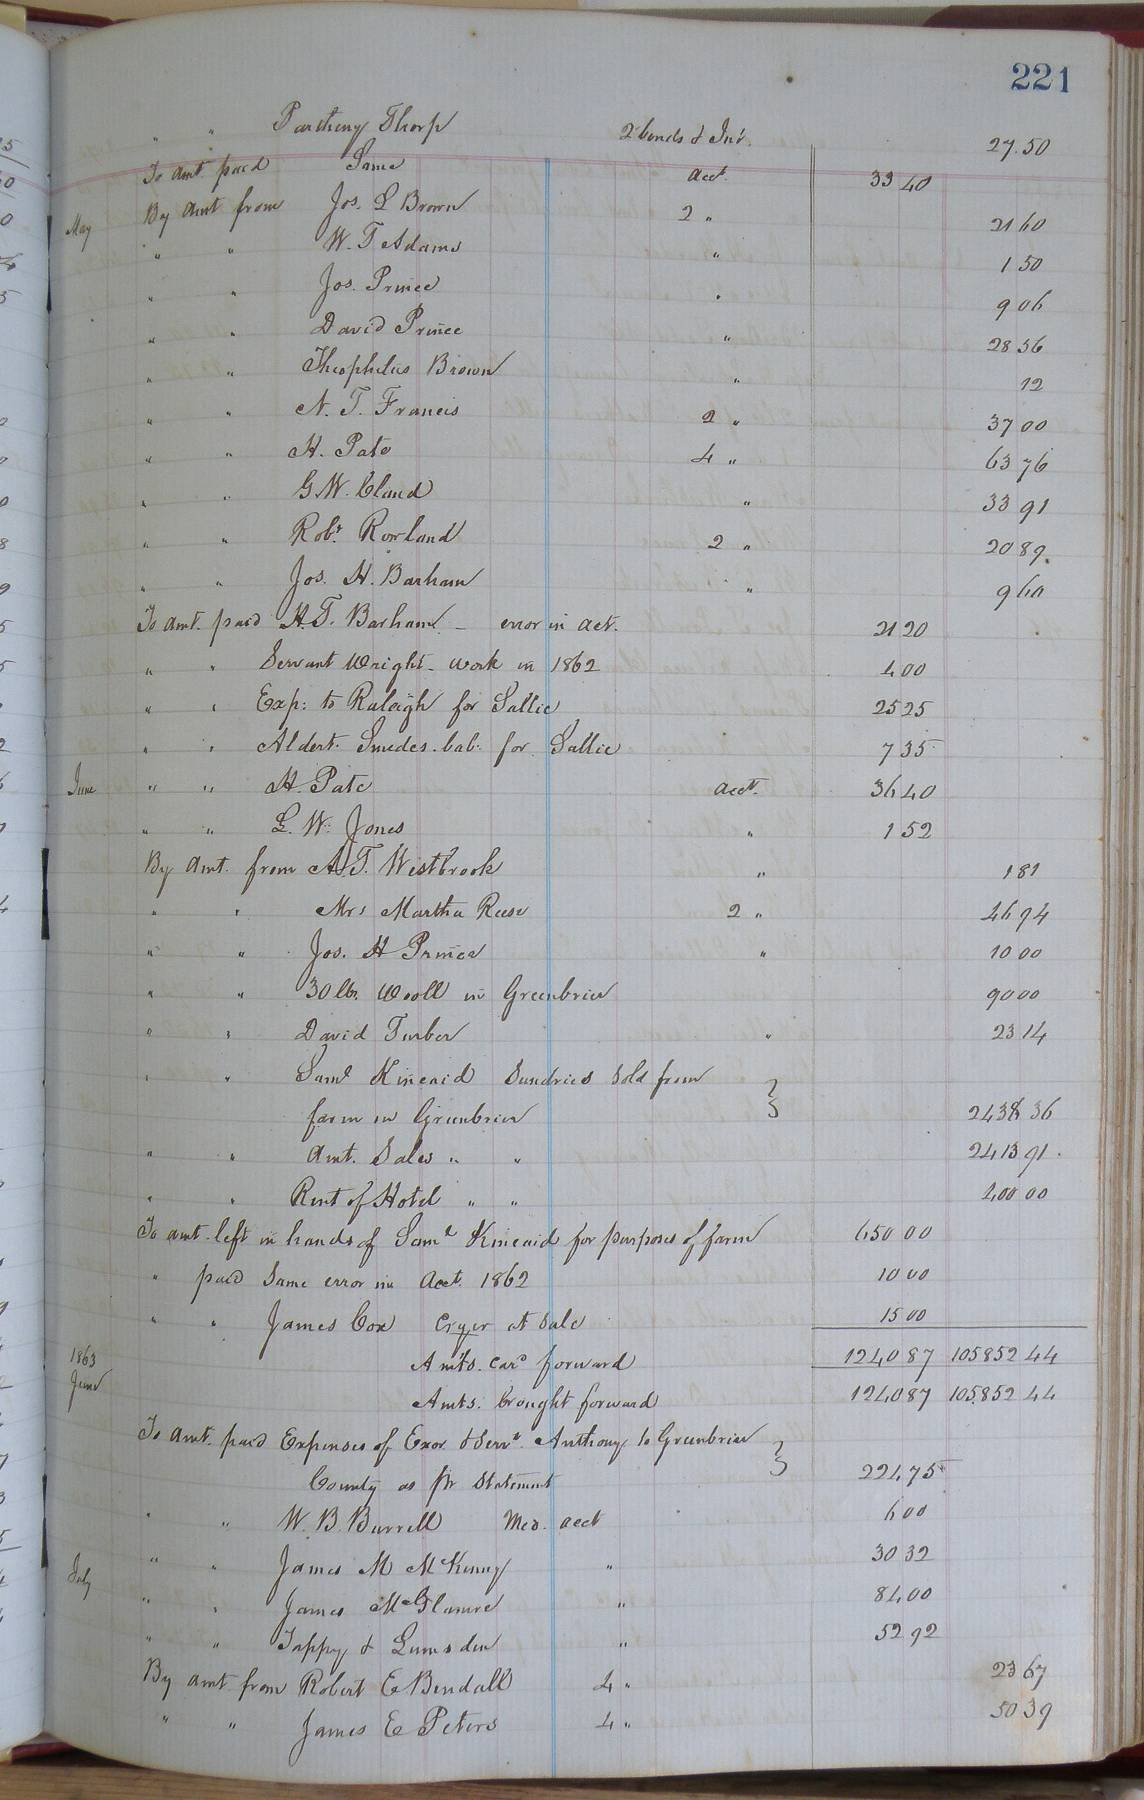 221
" " Partheny Thorp 2 bonds & Int. 27.50
To amt. paid Same acct. 33 40
May By amt from Jos. L Brown 2 " 21 60
" " W. T Adams " 1 50
" " Jos. Prince " 9 06
" " David Prince " 28 56
" " Theophilus Brown " 12
" " N. T. Francis 2 " 37 00
" " H. Pate 4 " 63 76
" " G. W. Cland " 33 91
" " Robt. Rowland 2 " 20 89
" " Jos. H. Barham " 9 60
To amt. paid H. T. Barham - error in act. 21 20
" " Servant Wright - work in 1862 4 00
" " Exp: to Raleigh for Sallie 25 25
" " Aldert. Smedes. bal. for Sallie 7 35
June " " H. Pate acct. 36 40
" " L. W. Jones " 1 52
By Amt. from A. T. Westbrook " 1 81
" " Mrs Martha Reese 2 " 46 94
" " Jos. H Prince " 10 00
" " 30 lbs. Wooll in Greenbrier 90 00
" " David Turber " 23 14
" " Saml Kincaid Sundries Sold from
farm in Greenbrier 2438 36
" " Amt. Sales " " 2413 91
" " Rent of Hotel " " 400 00
To amt. left in hands of Saml Kincaid for purposes of farm 650 00
" paid Same error in Acct. 1862 10 00
" " James Cox Cryer at Sale 15 00
1863 Amts. card forward 1240 87 105852 44
June Amts. brought forward 1240 87 105852 44
To amt. paid Expenses of Exor & Servt. Anthony to Greenbrier
County as pr Statement 224.75
" " W. B. Burrell Med. acct 6 00
" " James M McKenny " 30 32
July " " James McGlamre " 84 00
" " Tappy & Lumsden " 52 92
By amt from Robert E Bendall 4 " 23 67
" " James E Peters 4 " 50 39